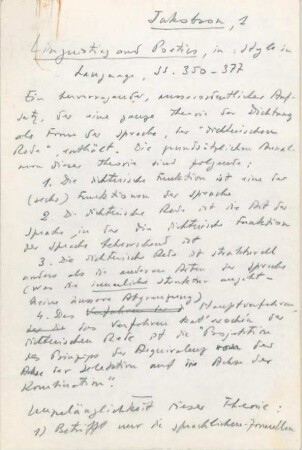 Jakobson, 1
Linguistics and Poetics, in: Style in
Language, SS. 350-377
Ein hervorragender, ausserordentlicher Auf-
satz, der eine ganze Theorie der Dichtung
als Form der Sprache, der "dichterischen
Rede", enthält. Die grundsätzlichen
dieser Theorie sind folgende:
1. Die dichterische Funktion ist eine der
(sechs) Funktionen der Sprache
2. Die dichterische Rede ist die Art der
Sprache, in der die dichterische Funktion
der Sprache beherrschend ist
3. Die dichterische Rede ist strukturell
anders als die anderen Arten der Sprache
(was die innerliche Struktur angeht-
keine äussere Abgrenzung)
4. Das Hauptverfahren-
das Verfahren kat'exochen der
dichterischen Rede ist die "Projektion
des Prinzips der Äquivalenz von der
Achse der Selektion auf die Achse der
Kombination".
Unzulänglichkeit dieser Theorie:
1) Betrifft nur die sprachlichen-formellen